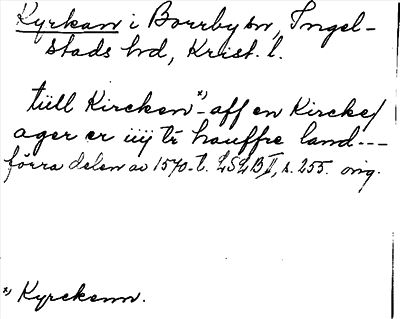 Kyrkan i Borrby sn, Ingel-
stads hd, Krist. l.
till Kircken x) aff en Kircke/
ager er iiij tr hauffre land---
förra delen av 1570-t. LSLB II, s. 255. orig.
x) Kyrckenn.